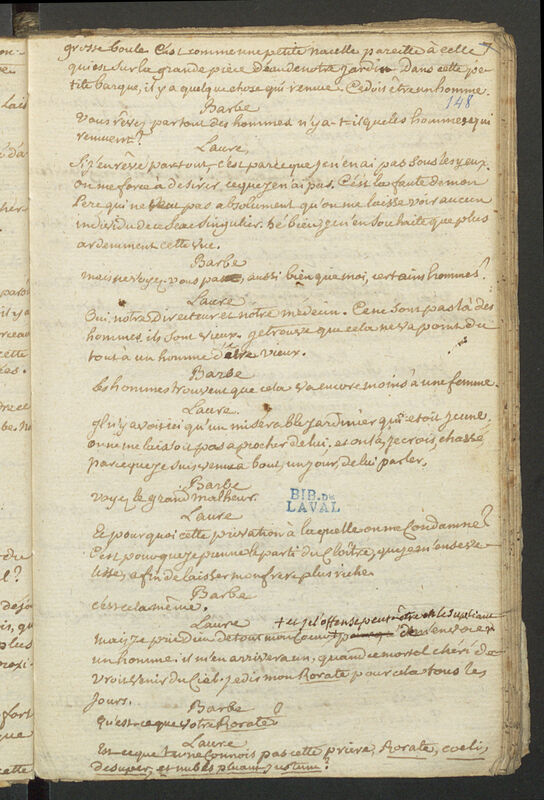 grosse boule. C'est comme une petite nacelle pareille à celle
qui est sur la grande pièce d'eau de notre jardin. Dans cette pe-
tite barque, il y a quelque chose qui remue. Ce doit être un homme.
148
Barbe
Vous rêvez partout des hommes. n'y a-t-il que les hommes qui
remuent?
Laure
Si j'en rêve partout, c'est parceque je n'en ai pas sous les yeux.
on me force à desirer ce que je n'ai pas. C'est la faute de mon
Pere qui ne veut pas absolument qu'on me laisse voir aucun
individu de ce Sexe singulier. hé bien, je n'en souhaite que plus
ardemment cette vue.
Barbe
mais ne voyez-vous pas, aussi bien que moi, certains hommes?
Laure
Oui, notre Directeur et notre médecin. Ce ne sont pas là des
hommes, ils sont vieux. je trouve que cela ne va point du
tout à un homme d'être vieux.
Barbe
les hommes trouvent que cela va encore moins à une femme.
Laure.
Il n'y avoit ici qu'un miserable jardinier qui étoit jeune,
on ne me laissoit pas aprocher de lui, et on l'a, je crois, chassé,
parceque je suis venue à bout, un jour, de lui parler.
Barbe
Voyez le grand malheur.
BIB. DE
LAVAL
Laure
Et pourquoi cette privation à laquelle on me Condamne?
C'est pour que je prenne le parti du Cloître, que je m'enseve-
lisse, afin de laisser mon frere plus riche.
Barbe
c'est cela même.
Laure
mais je prie dieu de tout mon Coeur + de m'envoier
un homme: il m'en arrivera un, quand ce mortel cheri de-
vroit venir du Ciel. je dis mon Rorate pour cela tous les
jours.
Barbe
Qu'est-ce que votre Rorate?
Laure
Est-ce que tu ne connois pas cette priere, Rorate, coeli,
desuper, et nubes pluant justum?